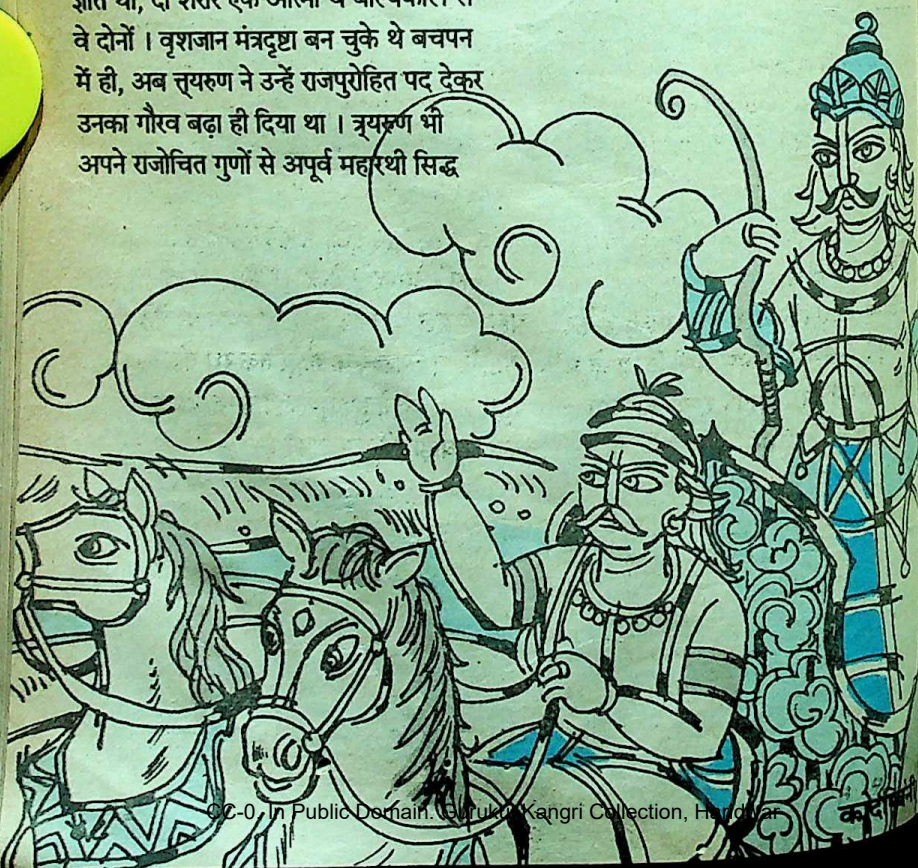 ज्ञात था, दो शरीर एक आत्मा थे बाल्यकाल से
वे दोनों । वृशजान मंत्रदृष्टा बन चुके थे बचपन
में ही, अब त्र्यरुण ने उन्हें राजपुरोहित पद देकर
उनका गौरव बढ़ा ही दिया था । त्र्यरुण भी
अपने राजोचित गुणों से अपूर्व महारथी सिद्ध
CC-0. In Public Domain. Gurukul Kangri Collection, Haridwar